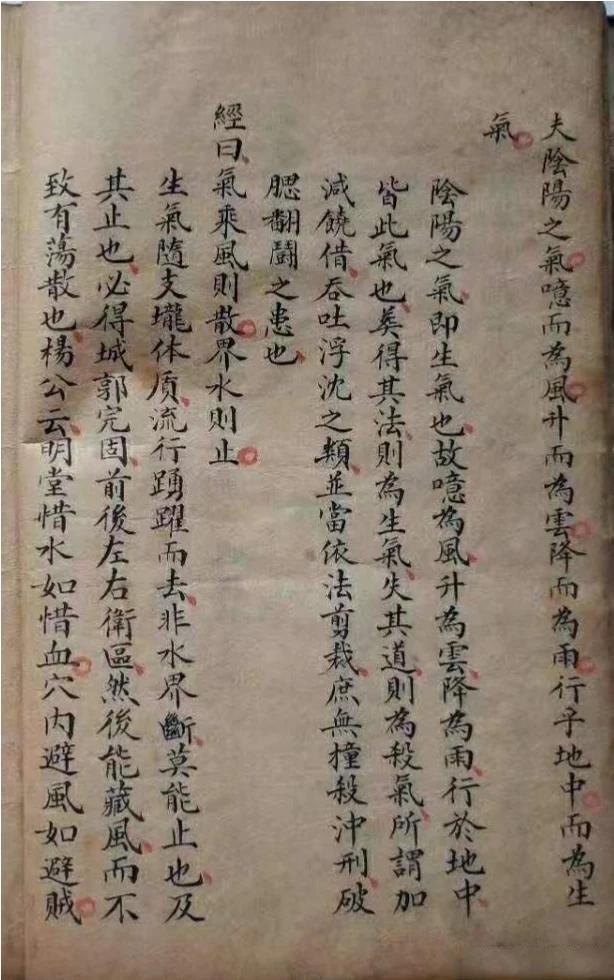 夫陰陽之氣噫而為風升而為雲降而為雨行乎地中而為生
氣
陰陽之氣即生氣也故噫為風升為雲降為雨行於地中
皆此氣也矣得其法則為生氣失其道則為殺氣所謂加
減饒借吞吐浮沈之類並當依法剪裁庶無撞殺沖刑破
腮翻鬪之患也
經曰氣乘風則散界水則止
生氣隨支壠体质流行踴躍而去非水界斷莫能止也及
其止也必得城郭完固前後左右衛區然後能藏風而不
致有蕩散也楊公云明堂惜水如惜血穴内避風如避賊